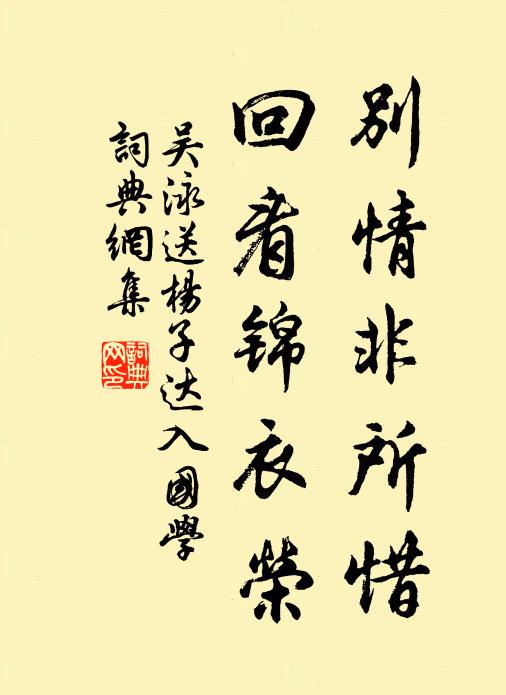 别情非所惜
回看锦衣荣
吴泳送杨子达入国学
词典网集
词典
网印